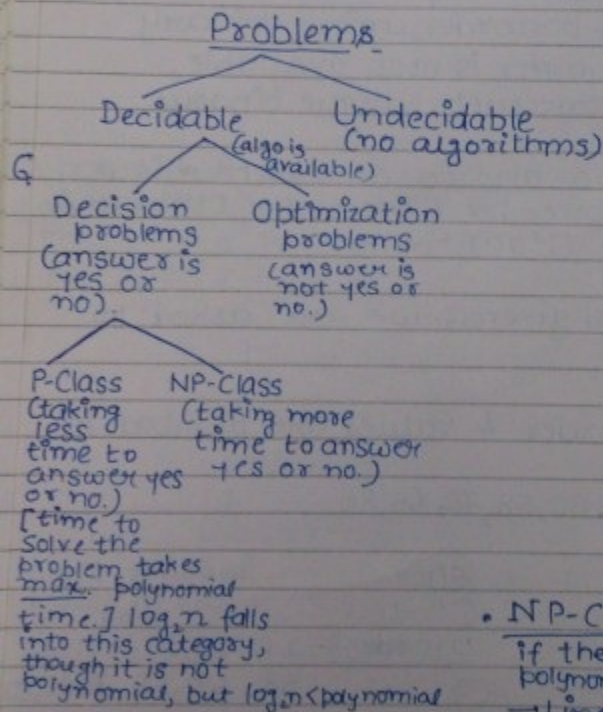 Problems
Decidable
Undecidable
(algo is
available)
(no algorithms)
Decision
problems
(answer is
yes or
no).
Optimization
problems
(answer is
not yes or
no.)
P-Class
(taking
less
time to
answer yes
or no.)
[time to
solve the
problem takes
max. polynomial
time.] log₂n falls
into this category,
though it is not
polynomial, but log₂n<polynomial
NP-Class
(taking more
time to answer
yes or no.)
• NP-C
if the
polyno